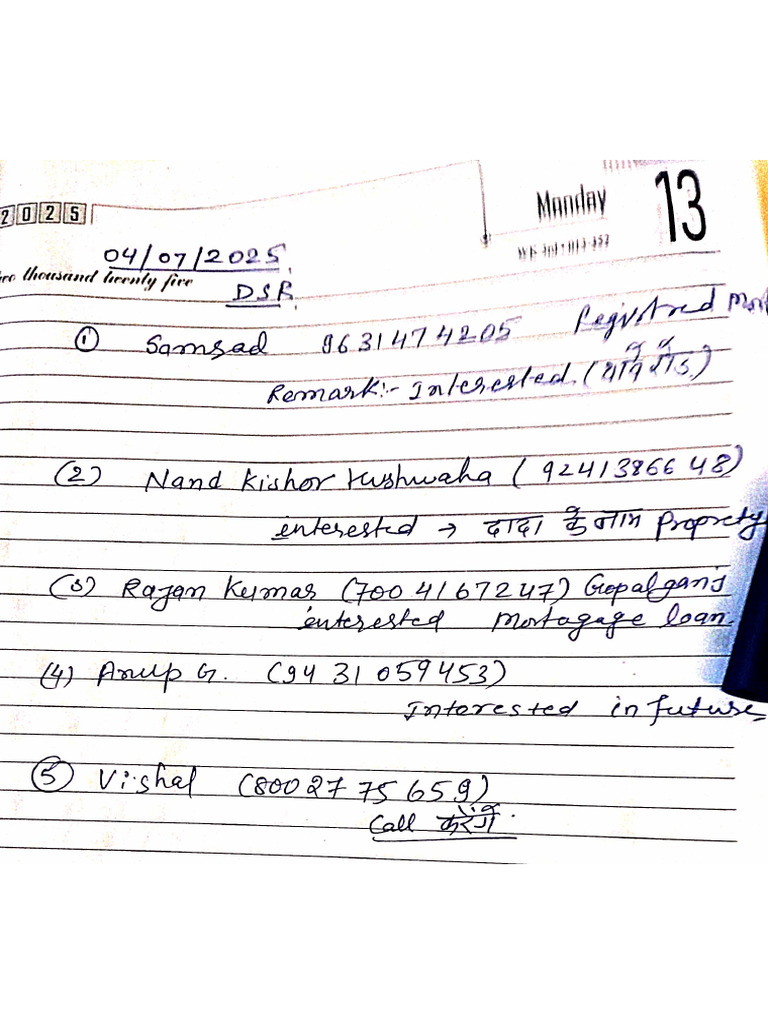 2025
Monday 13
04/07/2025
two thousand twenty five
DSR
① Samsad 9631474205 Registred
Remark:- Interested (
(2) Nand Kishor Kushwaha (9241386648)
interested → दादा के नाम Proprety
(3) Rajan Kumar (7004167247) Gopalganj
interested Mortagage loan
(4) Anup G. (9431059453)
Interested in future
⑤ Vishal (8002775659)
Call करेंगे.